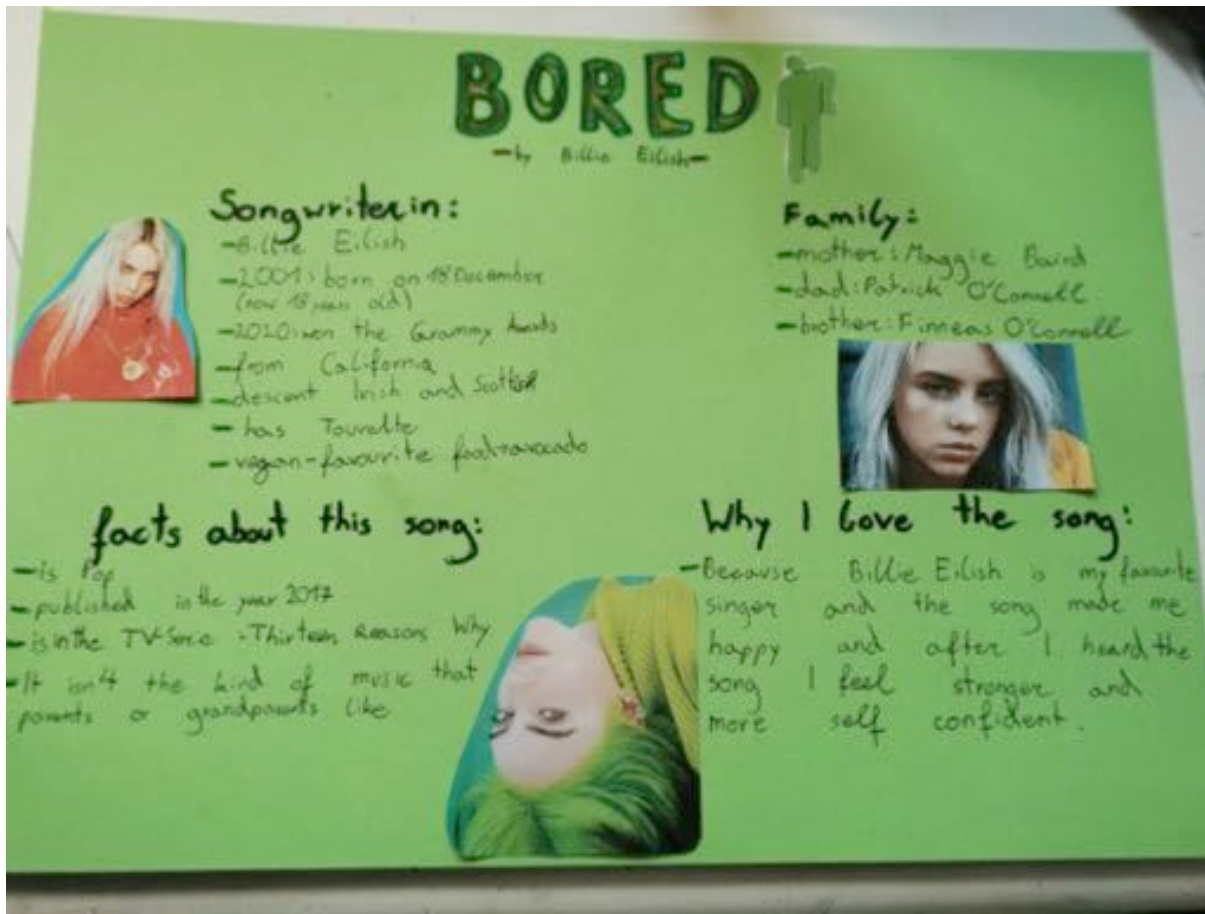 BORED
-by Billie Eilish-
Songwriterin:
-Billie Eilish
-2001: born on 18 December
(now 18 years old)
-2020: won the Grammy Awards
-from California
-descent Irish and Scottish
- has Tourette
-vegan-favourite food→avocado
Family:
-mother: Maggie Baird
-dad: Patrick O'Connell
-brother: Finneas O'Connell
facts about this song:
-is Pop
-published in the year 2017
-is in the TV-Serie: Thirteen Reasons Why
-It isn't the kind of music that
parents or grandparents like
Why I love the song:
-Because Billie Eilish is my favourite
singer and the song made me
happy and after I heard the
song I feel stronger and
more self confident.